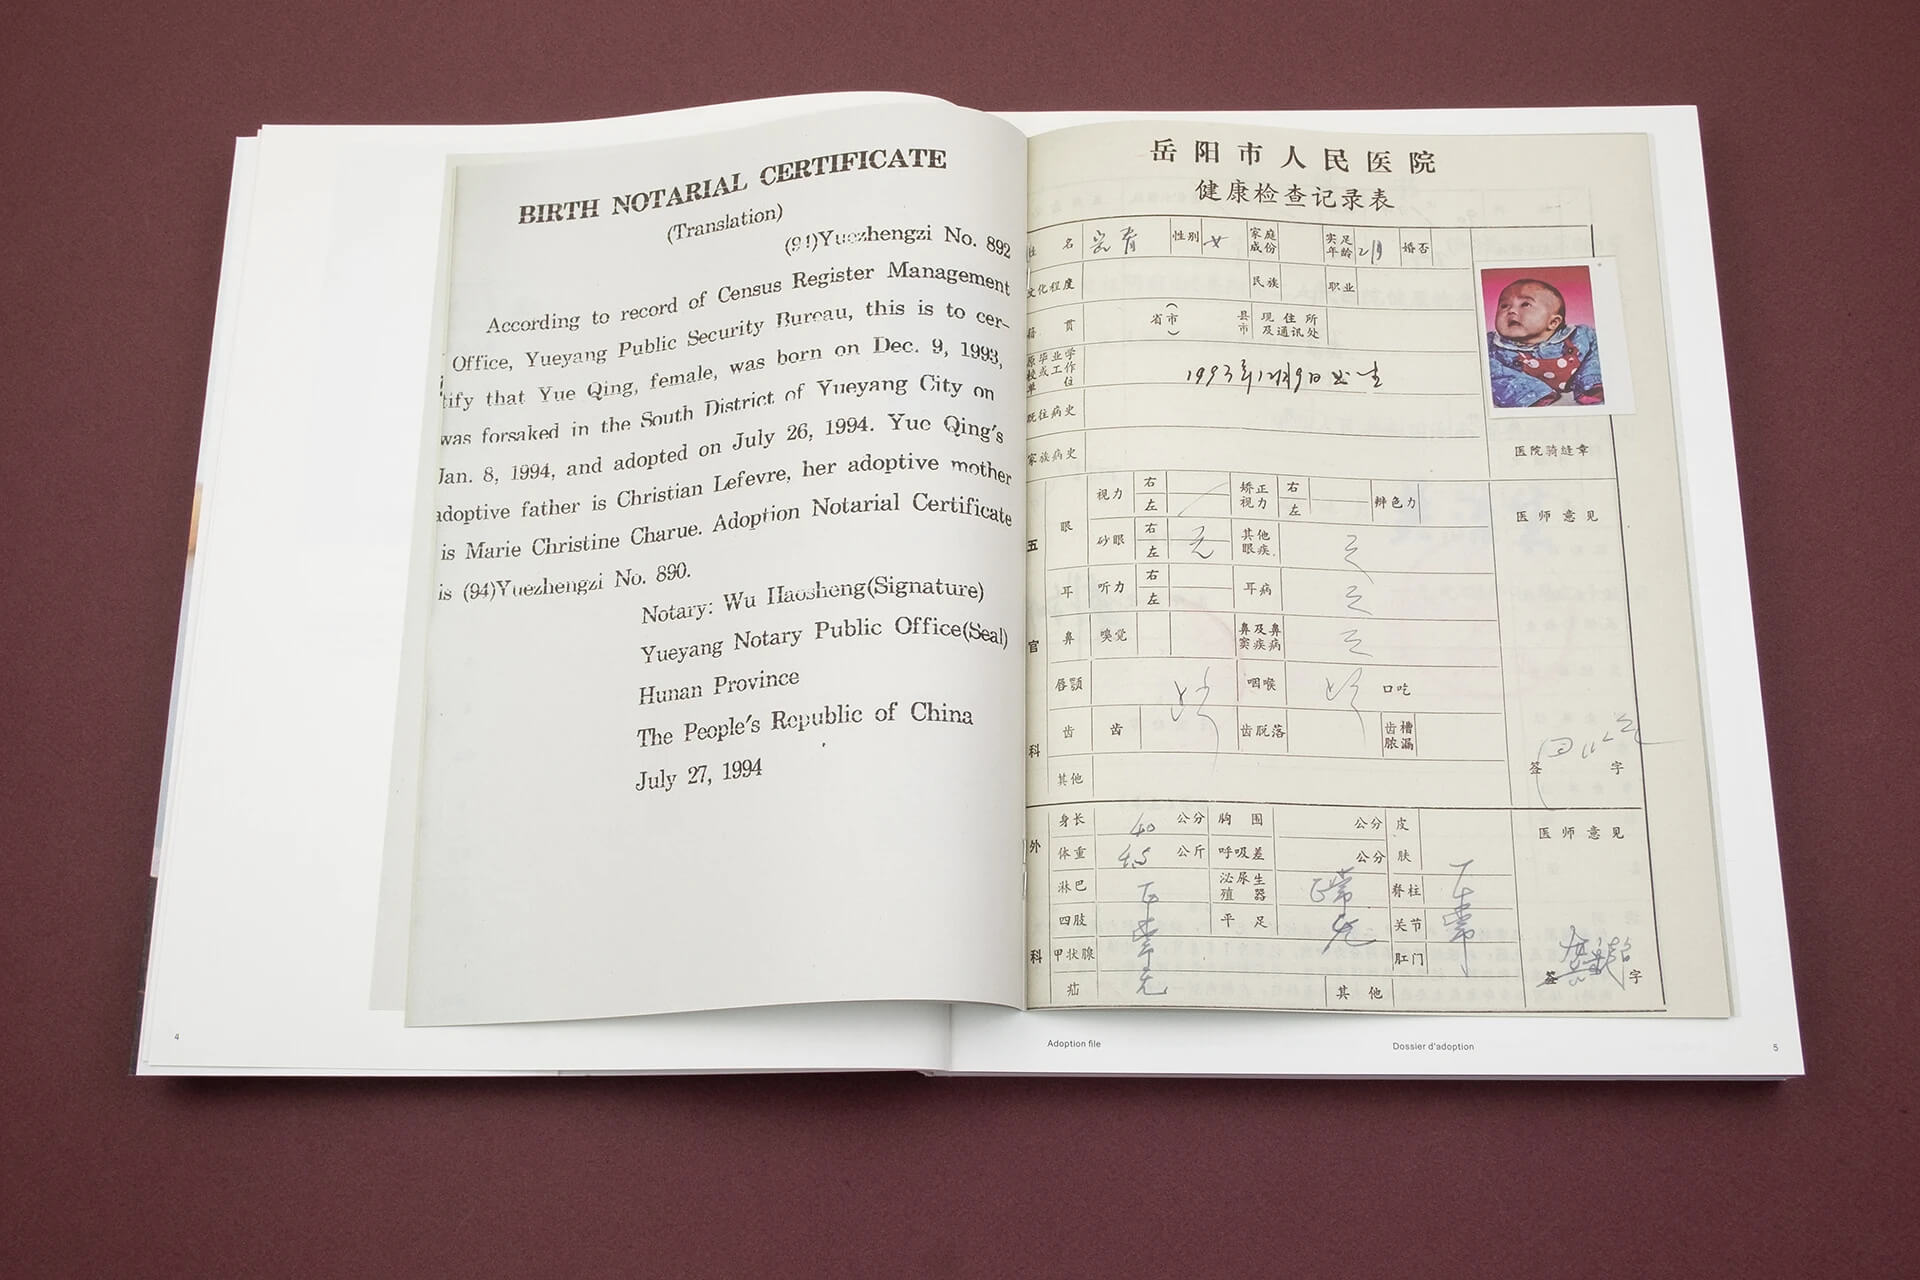 BIRTH NOTARIAL CERTIFICATE
(Translation)
(94)Yuezhengzi No. 892
According to record of Census Register Management
Office, Yueyang Public Security Bureau, this is to cer-
tify that Yue Qing, female, was born on Dec. 9, 1993,
was forsaked in the South District of Yueyang City on
Jan. 8, 1994, and adopted on July 26, 1994. Yue Qing's
adoptive father is Christian Lefevre, her adoptive mother
is Marie Christine Charue. Adoption Notarial Certificate
is (94)Yuezhengzi No. 890.
Notary: Wu Haosheng(Signature)
Yueyang Notary Public Office(Seal)
Hunan Province
The People's Republic of China
July 27, 1994
4
岳阳市人民医院
健康检查记录表
姓名 性别 女 家庭成份 实足年龄 2月 婚否
文化程度 民族 职业
籍贯 省(市) 县市 现住所及通讯处
原毕业学校或工作单位 1993年12月9日出生
既往病史
家族病史
医院骑缝章
五官科
眼 视力 右 左 矫正视力 右 左 辨色力
医师意见
砂眼 右 左 无 其他眼疾 无
耳 听力 右 左 耳病 无
鼻 嗅觉 鼻及鼻窦疾病 无
唇颚 咽喉 口吃
齿 齿 齿脱落 齿槽脓漏
其他
签字
外科
身长 40 公分 胸围 公分 皮肤
医师意见
体重 4.5 公斤 呼吸差 公分
淋巴 正常 泌尿生殖器 正常 脊柱 正常
四肢 平足 无 关节
甲状腺 肛门
疝 无 其他
签字
Adoption file
Dossier d'adoption
5